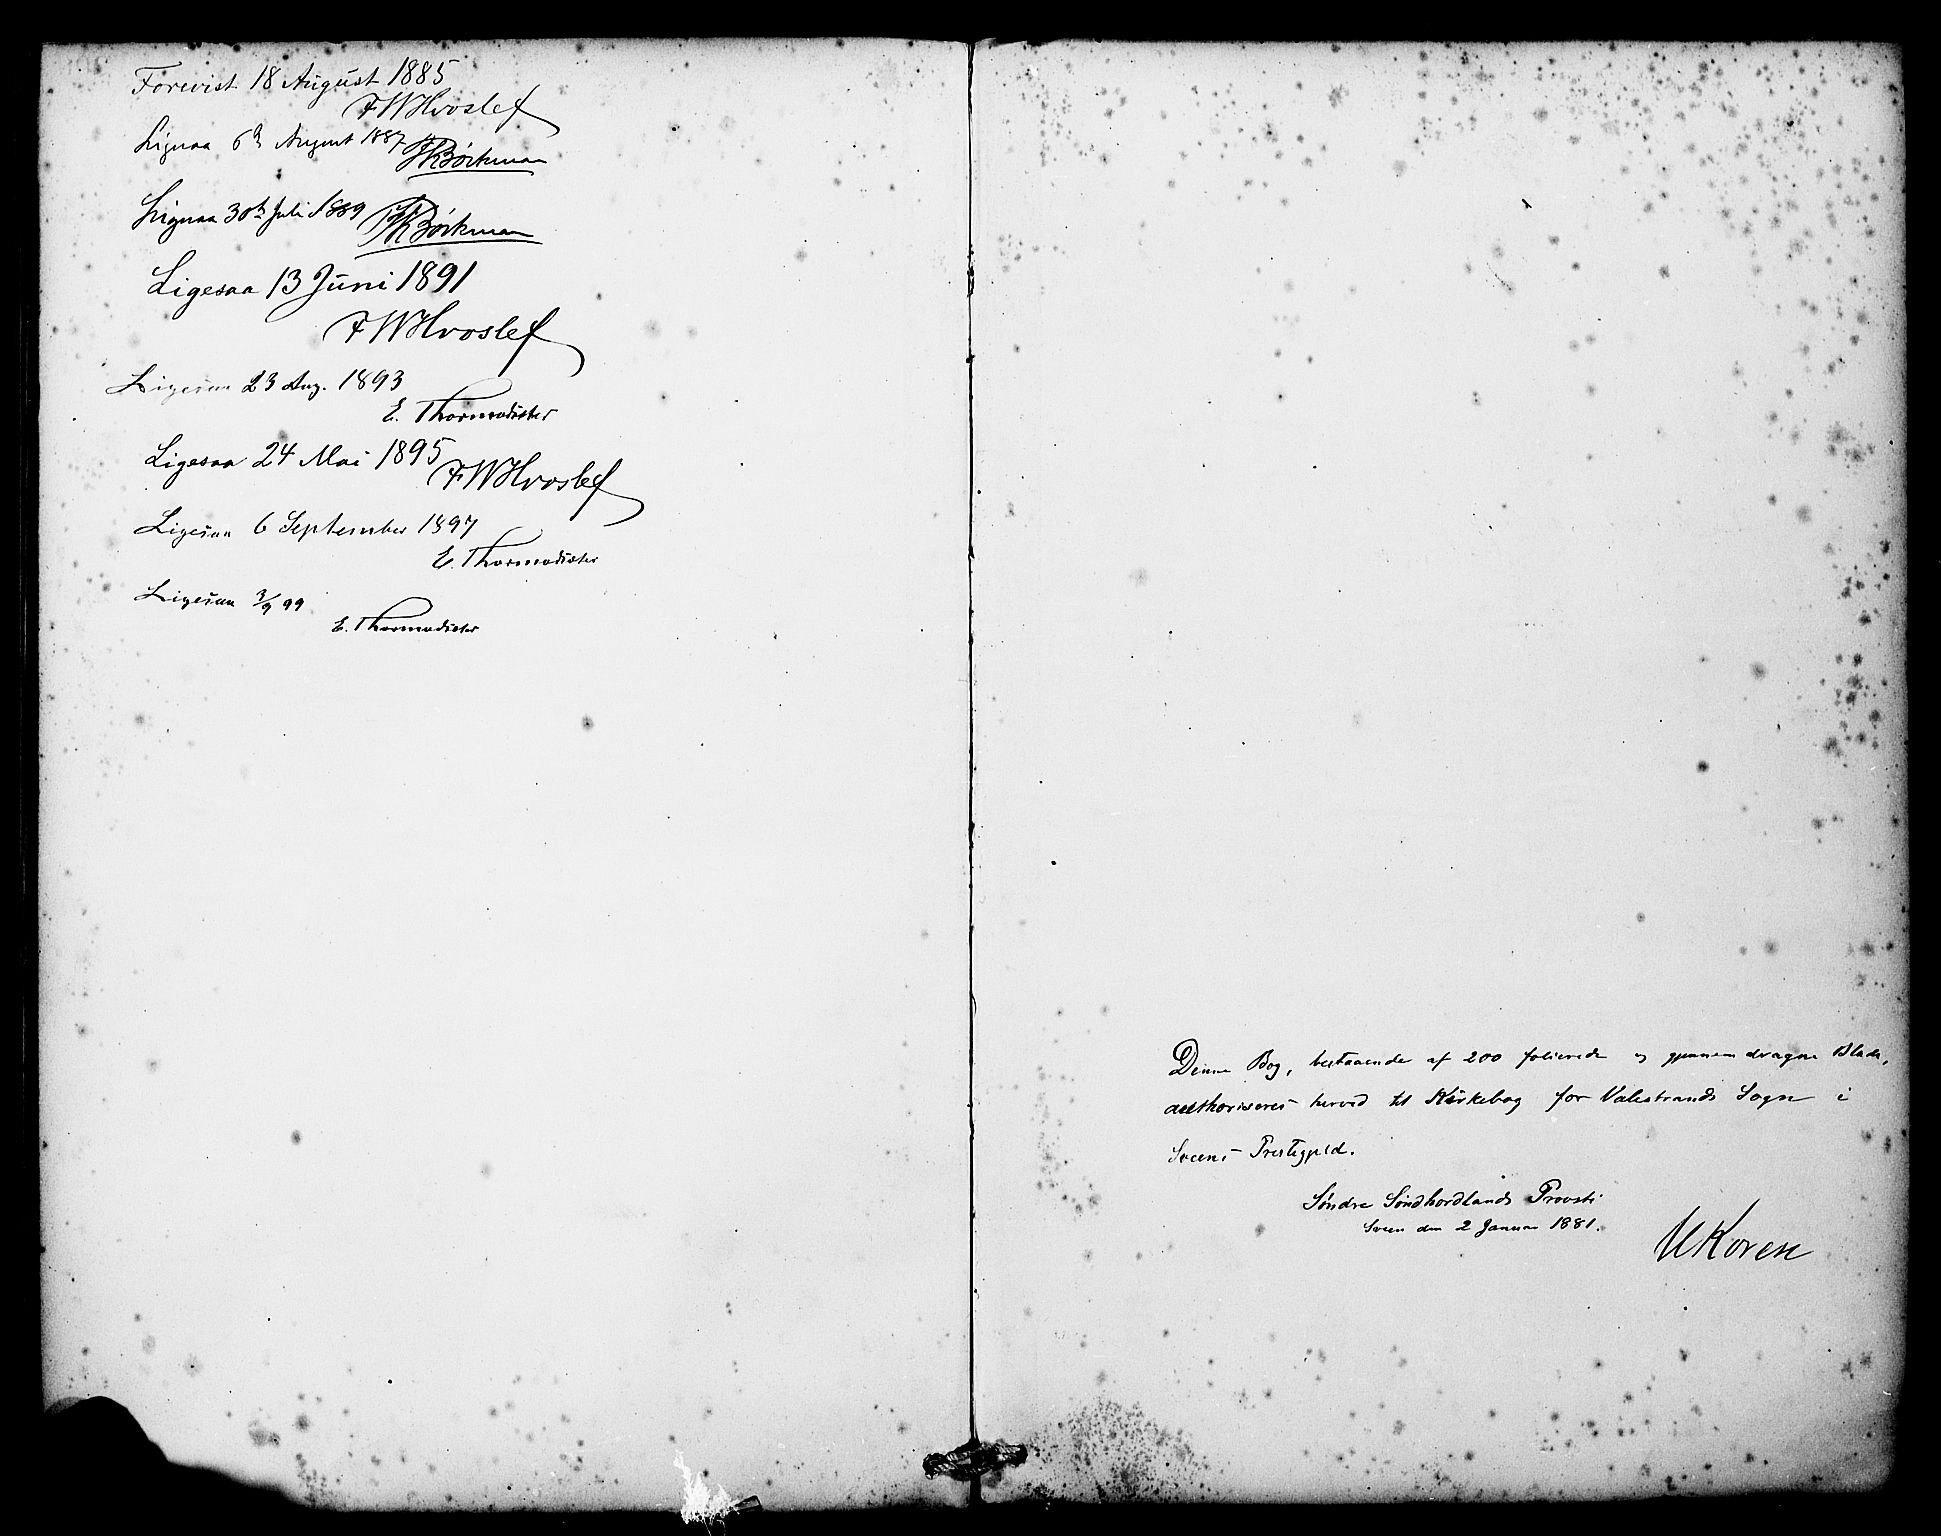 Forevist 18 August 1885
FWHvoslef
Ligesaa 6te August 1887 JKBöckman
Ligesaa 30te Juli 1889 JKBöckman
Ligesaa 13 Juni 1891
FWHvoslef
Ligesaa 23 Aug. 1893
E. Thormodsæter
Ligesaa 24 Mai 1895
FWHvoslef
Ligesaa 6 September 1897
E. Thormodsæter
Ligesaa 3/9 99
E. Thormodsæter
Denne Bog, bestaaende af 200 folierede og gjennemdragne Blade,
authoriseres herved til Kirkebog for Valestrands Sogn i
Sveens Prestegjeld.
Søndre Søndhordlands Provsti
Sveen den 2 Januar 1881.
UKoren